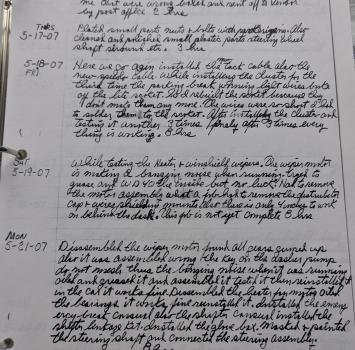 me that were wrong
and sent off to
by post office 2 hrs
THURS
5-17-07
Plated small parts nuts & bolts with
cleaned and polished small plastic parts steering wheel
shaft shroud etc. 3 hrs
5-18-07
FRI
Here we go again installed the tack cable also the
new speedo cable. While installing the cluster for the
third time the parking brake warning light wires broke
at the lite socket. Had to rebuilt the socket because they
don't make them any more. The wires were so short I had
to solder them to the socket. After installing the cluster and
testing it another 3 times, finally after 3 times every
thing is working. 8 hrs
SAT
5-19-07
While testing the Heater & windshield wipers. The wiper motor
is making a banging noise when running. Tried to
grease and WD40 the inside but no luck. Had to remove
the motor assembly what a job. Had to remove the distributor
cap & wires shielding mounts that there is only to work
on behind the dash. This job is not yet complete 8 hrs
MON
5-21-07
Dissembled the wiper motor found all gears gummed up
also it was assembled wrong the key on the
do not mesh thus the banging noise when it was running
oiled and greased it and assembled it tested it then reinstalled it
in the car it works fine. Dissembled the heater fan motor oiled
the bearings it works fine reinstalled it. Installed the emerg
ency brake consual also the shifter consual installed the
shifter linkage kit. Installed the glove box. Masked & painted
the steering shaft and connected the steering assembly.
8 hrs